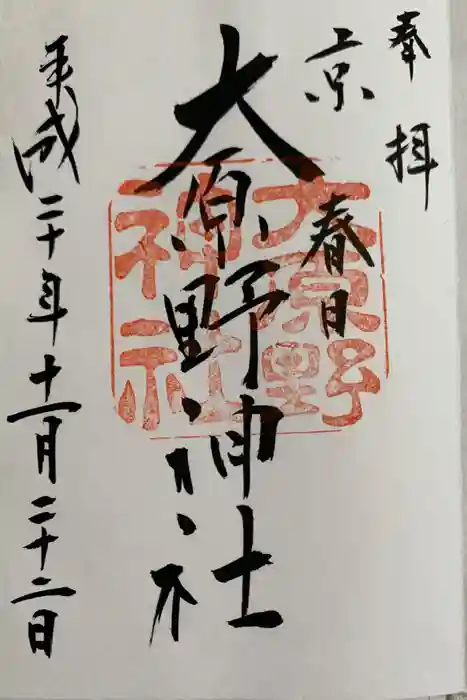 奉拝
京春日
大原野神社
大原野神社
平成二十年十一月二十二日